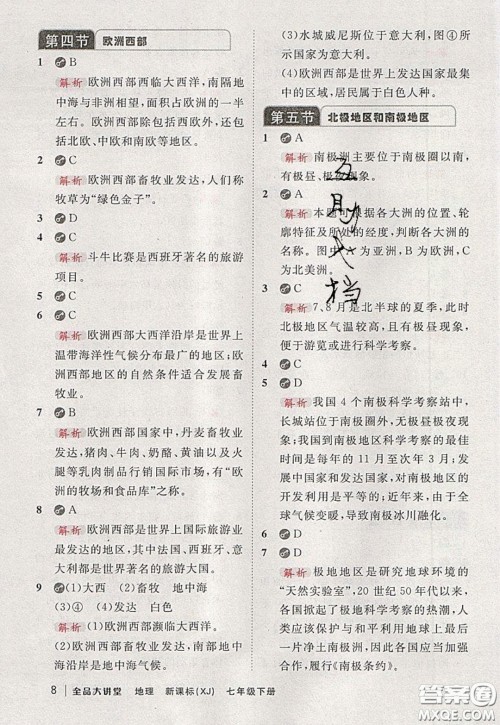 第四节 欧洲西部
1 B
解析 欧洲西部西临大西洋，南隔地
中海与非洲相望，面积约占欧洲的一半
左右。欧洲西部除包括西欧外，还包括
北欧、中欧和南欧等地区。
2 C
解析 欧洲西部畜牧业发达，人们称
牧草为“绿色金子”。
3 D
4 D
解析 斗牛比赛是西班牙著名的旅游
项目。
5 C
6 C
解析 欧洲西部大西洋沿岸是世界上
温带海洋性气候分布最广的地区；欧
洲西部地区的自然条件适合发展畜
牧业。
7 B
解析 欧洲西部国家中，丹麦畜牧业
发达，猪肉、牛奶、黄油以及火
腿等乳肉制品行销国际市场，有“欧
洲的牧场和食品库”之称。
8 D
解析 欧洲西部是世界上国际旅游业
最发达的地区，其中法国、西班牙、意
大利都是世界旅游大国。
9 (1)大西 (2)畜牧 地中海
(3)④ (4)发达 白色
解析 (1)欧洲西部西濒大西洋。
(2)欧洲西部畜牧业发达，南部地中海
沿岸属于地中海气候。
(3)水城威尼斯位于意大利，图④所
示国家为意大利。
(4)欧洲西部是世界上发达国家最集
中的区域，居民属于白色人种。
第五节 北极地区和南极地区
1 A
解析 南极洲主要位于南极圈以南，
有极昼、极夜现象。
2 A
解析 本题可根据各大洲的位置、轮
廓特征及所处的经度，判断各大洲的
名称。图中A为亚洲，B为欧洲，C
为北美洲。
3 C
解析 7、8月是北半球的夏季，此时
北极地区气温较高，且有极昼现象，
便于游览或进行科学考察。
4 C
5 D
解析 我国4个南极科学考察站中，
长城站位于南极圈外，无极昼极夜现
象；我国到南极地区科学考察的最佳
时间是每年的11月至次年3月；
发达国家和发展中国家对南极地区的
开发利用是平等的；近几十年来，全
球气候变暖，导致南极冰川融化。
6 D
7 D
解析 极地地区是研究地球环境的
“天然实验室”，20世纪50年代以来，
各国掀起极地科学考察的热潮，人
类应该保护与和平利用地球上最后
一片净土南极洲，因此各国应当加强
合作，履行《南极条约》。
8 全品大讲堂 地理 新课标(XJ) 七年级下册